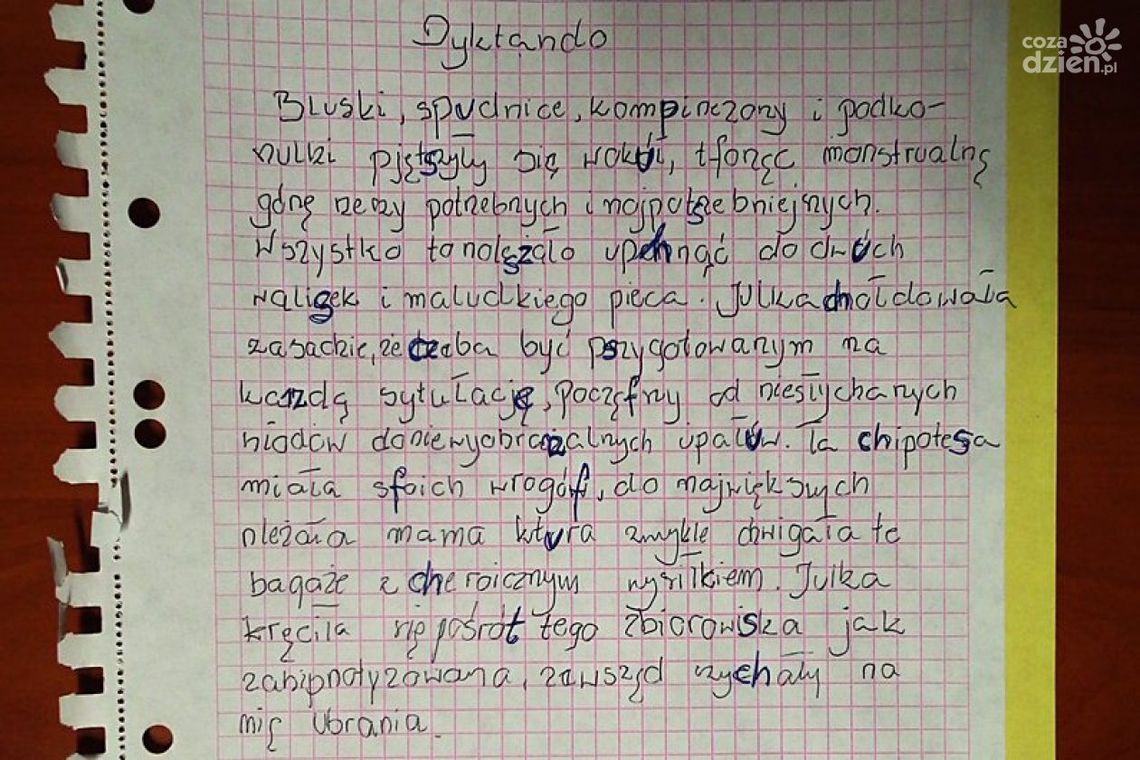 coza
dzien.pl
Dyktando
Bluski, spudnice, kompinezony i podko-
nulki pjętszyły się wokuł, tfożąc monstrualną
górę rzeczy potrzebnych i najpotszebniejszych.
Wszystko to nalężało upchnąć do dwóch
walisek i maludkiego pleca. Julka chołdowała
zasadzie, że czeba być pszygotowanym na
każdą sytułację, począfszy od niesłychanych
hłodów do niewyobrażalnych upałuw. Ta chipotesa
miała sfoich wrogóf, do największych
nleżała mama ktura zwykle dwigała te
bagaże z cheroicznym wysiłkiem. Julka
kręciła się pośrót tego zbiorowiska jak
zahipnotyzowana, zewsząd zychały na
mię ubrania.